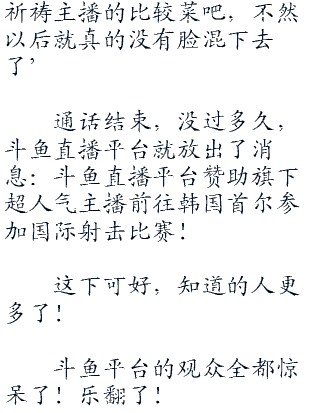 祈祷主播的比较菜吧，不然
以后就真的没有脸混下去
了’
通话结束，没过多久，
斗鱼直播平台就放出了消
息：斗鱼直播平台赞助旗下
超人气主播前往韩国首尔参
加国际射击比赛！
这下可好，知道的人更
多了！
斗鱼平台的观众全都惊
呆了！乐翻了！